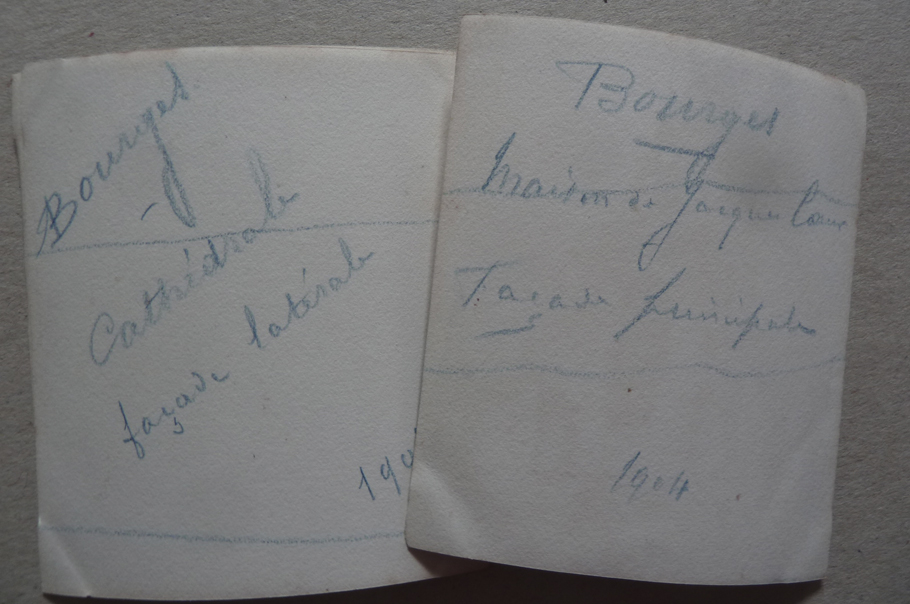 Bourges
Cathédrale
façade latérale
190
Bourges
Maison de Jacques Cœur
Façade principale
1904